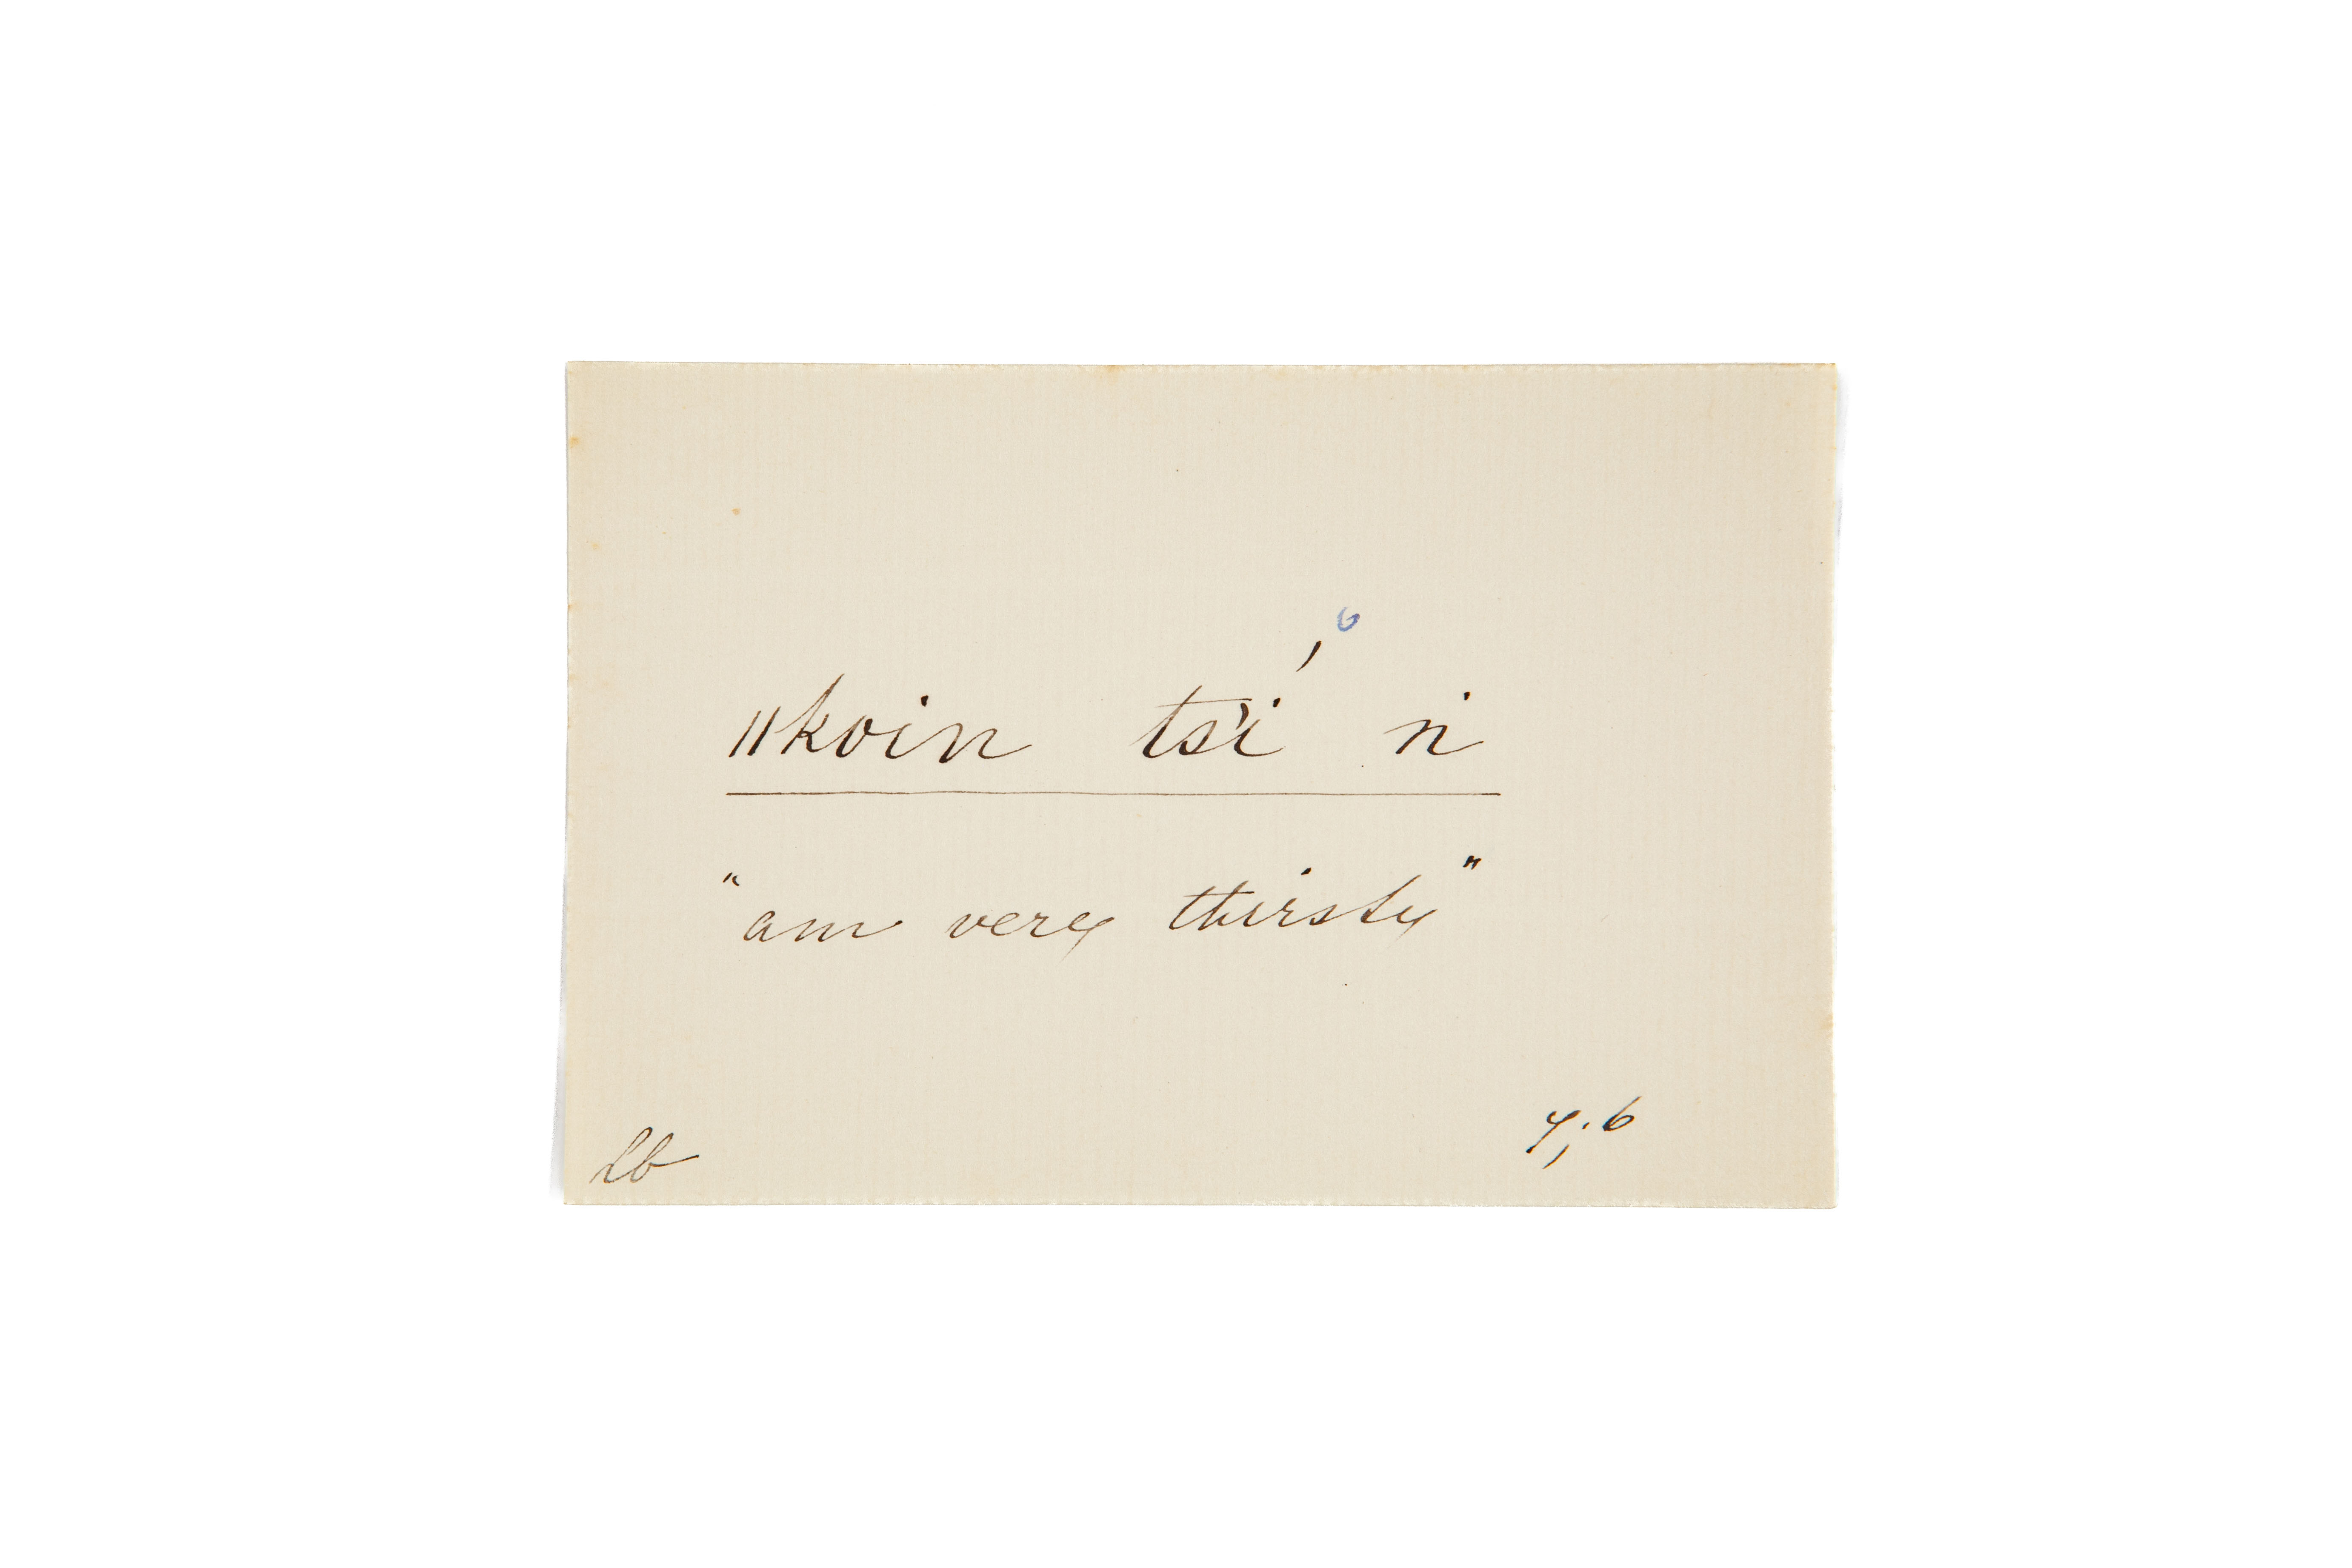 ǁkoin ts'i´ ni
"am very thirsty"
Lb
7; 6